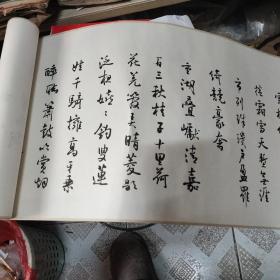 捲霜雪天塹無涯
市列珠璣戶盈羅
綺競豪奢
重湖疊巘清嘉
有三秋桂子十里荷
花羌管弄晴菱歌
泛夜嬉嬉釣叟蓮
娃千騎擁高牙乘
醉聽簫鼓吟賞烟